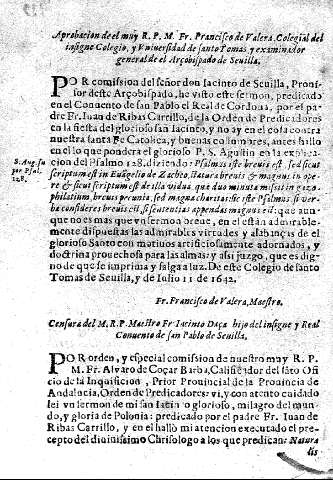 Aprobacion de el muy R. P. M. Fr. Francisco de Valera, Colegial del
insigne Colegio, y Vniversidad de santo Tomas, y examinador
general de el Arçobispado de Sevilla.
POR comission del señor don Iacinto de Sevilla, Provisor
deste Arçobispado, he visto este sermon, predicado
en el Convento de san Pablo el Real de Cordoua, por el padre
Fr. Iuan de Ribas Carrillo, de la Orden de Predicadores
en la fiesta del glorioso san Iacinto, y no ay en el cosa contra
nuestra santa Fe Catolica, y buenas costumbres, antes hallo
en el lo que pondera el glorioso P. S. Agustin en la explicacion
del Psalmo 128. diziendo: Psalmus este brevis est, sed sicut
S. Aug. su
per Psal.
128.
scriptum est in Evagelio de Zacheo, statura brevis & magnus in opere
& sicut scriptum est de illa vidua, que duo minuta misit in gazophilatium,
brevis pecunia, sed magna charitas: sic iste Psalmus, si verba
consideres brevis est, si sententias appendas magnus est: que aunque
no es mas que vn sermon breve, en el están admirablemente
dispuestas las admirables virtudes y alabanças de el
glorioso Santo con motivos artificiosamente adornados, y
doctrina provechosa para las almas: y assi juzgo, que es digno
de que se imprima y salga a luz. De este Colegio de santo
Tomas de Sevilla, y de Iulio 11 de 1642.
Fr. Francisco de Valera, Maestro.
Censura del M. R. P. Maestro Fr Iacinto Daça hijo del insigne y Real
Convento de san Pablo de Sevilla.
POR orden, y especial comission de nuestro muy R. P.
M. Fr. Alvaro de Coçar Barba, Calificador del sāto Oficio
de la Inquisicion, Prior Provincial de la Provincia de
Andalucia, Orden de Predicadores: vi, y con atento cuidado
lei vn sermon de mi san Iacinto glorioso, milagro del mundo,
y gloria de Polonia: predicado por el padre Fr. Iuan de
Ribas Carrillo, y en el hallò mi atencion executado el precepto
del divinissimo Chrisologo a los que predican: Natura
lis